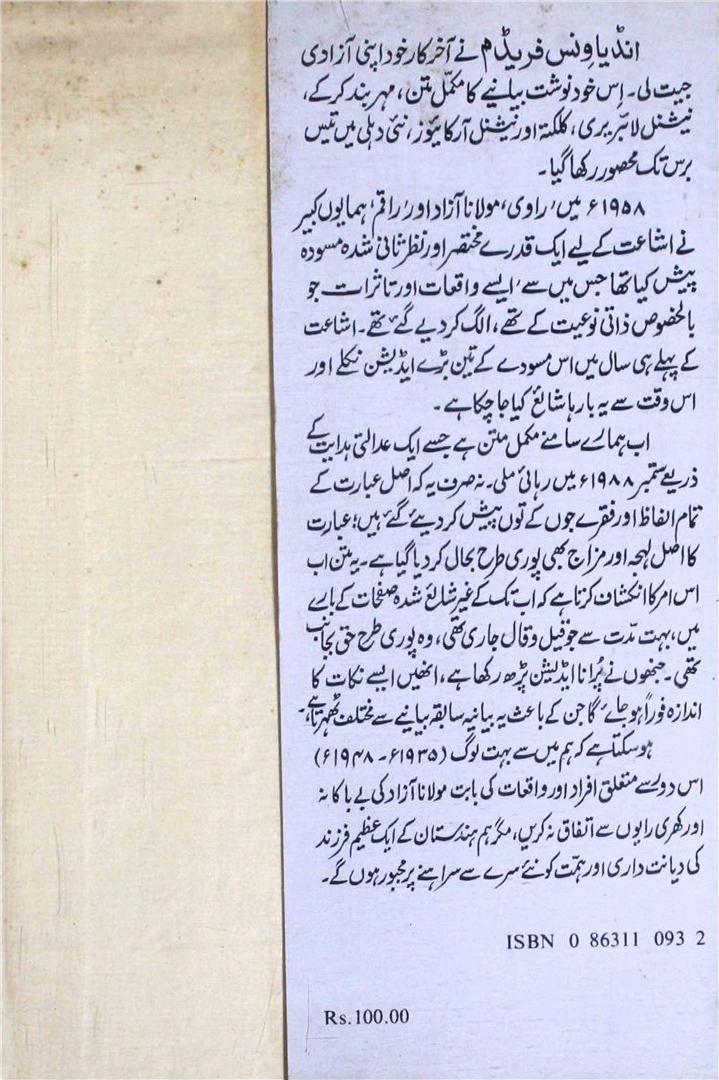 انڈیا وِنس فریڈم نے آخر کار خود اپنی آزادی
جیت لی۔ اِس خود نوشت بیانیے کا مکمّل متن، مہر بند کر کے،
نیشنل لائبریری، کلکتہ اور نیشنل آرکائیوز، نئی دہلی میں تیس
برس تک محصور رکھا گیا۔
۱۹۵۸ء میں 'راوی' مولانا آزاد اور 'راقم' ہمایوں کبیر
نے اشاعت کے لیے ایک قدرے مختصر اور نظرثانی شدہ مسودہ
پیش کیا تھا جس میں سے 'ایسے واقعات اور تاثرات جو
بالخصوص ذاتی نوعیت کے تھے، الگ کر دیے گئے' تھے۔ اشاعت
کے پہلے ہی سال میں اس مسودے کے تین بڑے ایڈیشن نکلے اور
اس وقت سے یہ بارہا شائع کیا جا چکا ہے۔
اب ہمارے سامنے مکمل متن ہے جسے ایک عدالتی ہدایت کے
ذریعے ستمبر ۱۹۸۸ء میں رہائی ملی۔ نہ صرف یہ کہ اصل عبارت کے
تمام الفاظ اور فقرے جوں کے توں پیش کر دیئے گئے ہیں؛ عبارت
کا اصل لہجہ اور مزاج بھی پوری طرح بحال کر دیا گیا ہے۔ یہ متن اب
اس امر کا انکشاف کرتا ہے کہ اب تک کے غیر شائع شدہ صفحات کے بارے
میں، بہت مدّت سے جو قیل و قال جاری تھی، وہ پوری طرح حق بجانب
تھی۔ جنھوں نے پُرانا ایڈیشن پڑھ رکھا ہے، انھیں ایسے نکات کا
اندازہ فوراً ہو جائے گا جن کے باعث یہ بیانیہ سابقہ بیانیے سے مختلف ٹھہرتا ہے۔
ہو سکتا ہے کہ ہم میں سے بہت لوگ (۱۹۳۵ء۔ ۱۹۴۸ء)
اس دور سے متعلق افراد اور واقعات کی بابت مولانا آزاد کی بے باکانہ
اور کھری رایوں سے اتفاق نہ کریں، مگر ہم ہندستان کے ایک عظیم فرزند
کی دیانت داری اور ہمّت کو نئے سرے سے سراہنے پر مجبور ہوں گے۔
ISBN 0 86311 093 2
Rs.100.00